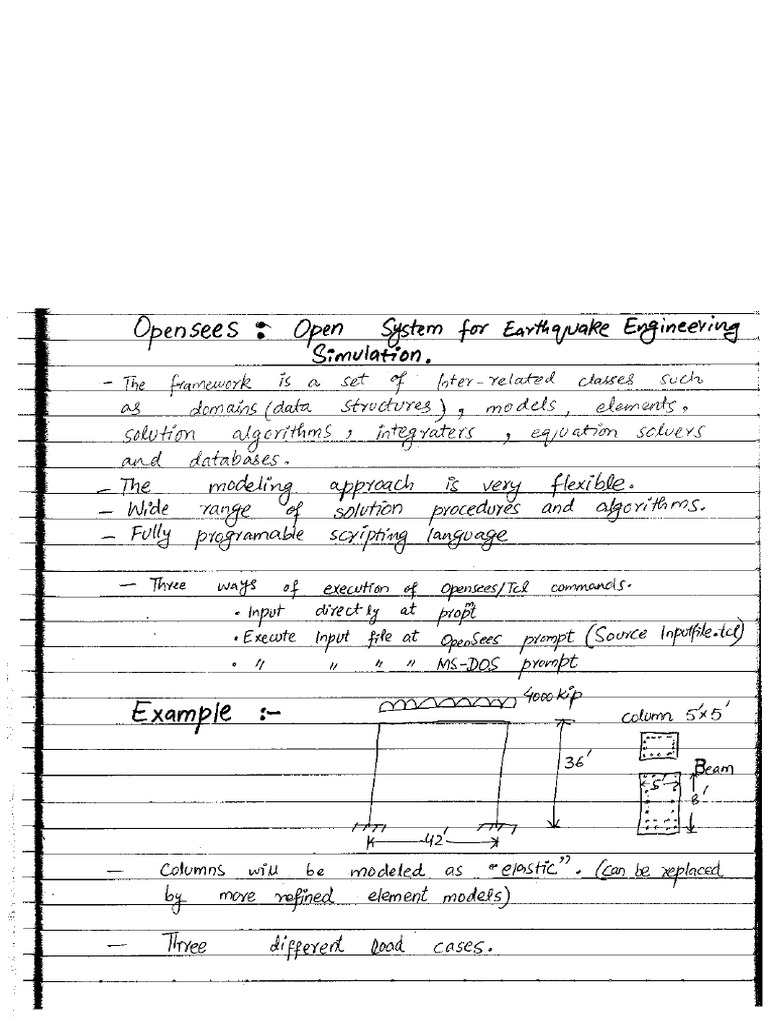 Opensees : Open System for Earthquake Engineering
Simulation.
- The framework is a set of Inter-related classes such
as domains (data structures), models, elements,
solution algorithms, integraters, equation solvers
and databases.
- The modeling approach is very flexible.
- Wide range of solution procedures and algorithms.
- Fully programable scripting language
- Three ways of execution of Opensees/Tcl commands.
• Input directly at propmt
• Execute Input file at OpenSees prompt (Source Inputfile.tcl)
• " " " " MS-DOS prompt
Example :-
4000 kip
column 5'x5'
36'
Beam
5'
8'
42'
- Columns will be modeled as "elastic". (can be replaced
by more refined element models)
- Three different load cases.